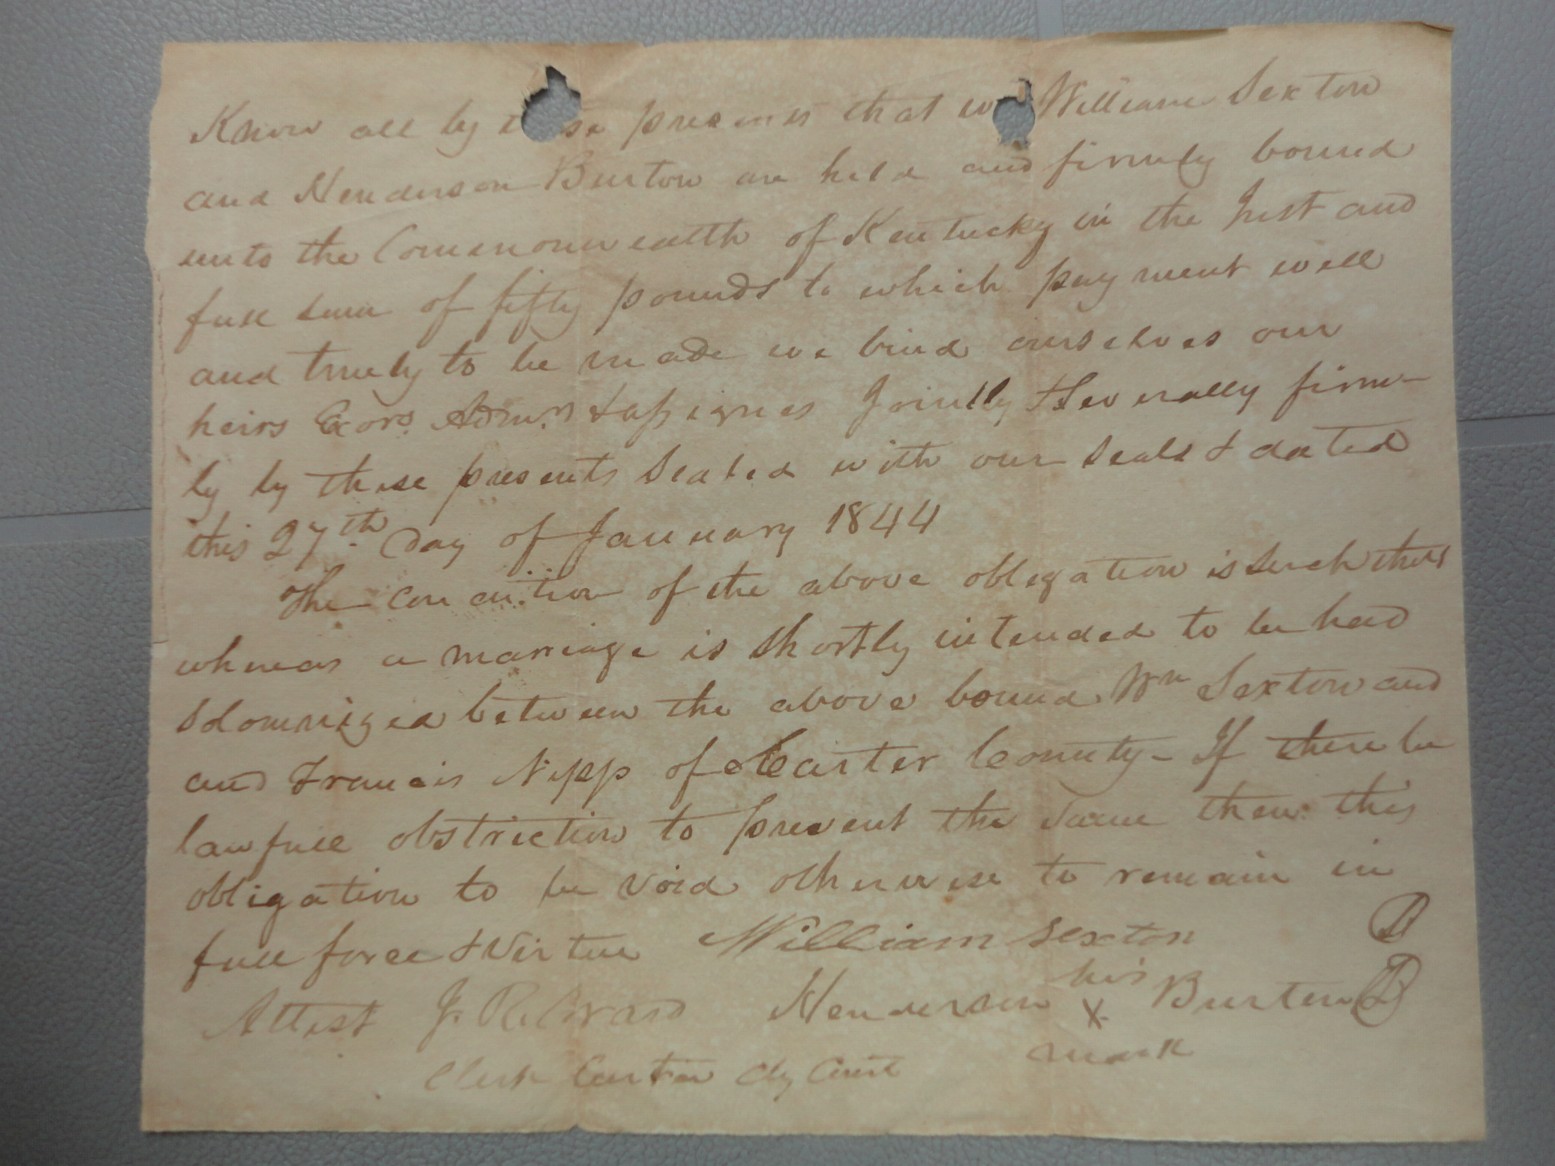 Know all by these presents that we William Sexton
and Henderson Burton are held and firmly bound
unto the Commonwealth of Kentucky in the Just and
full sum of fifty pounds to which payment well
and truely to be made we bind ourselves our
heirs Exors. Admn. & assignes Jointly & Severally firm-
ly by these presents Sealed with our Seals & dated
this 27th Day of January 1844
The condition of the above obligation is such that
whereas a marriage is shortly intended to be had
Solomnized between the above bound Wm Sexton and
and Francis Nipp of Carter County - If there be
lawfull obstriction to prevent the same then this
obligation to be void otherwise to remain in
full force & virtue William Sexton
Attest J. R. Ward Henderson his X mark Burton
Clerk Carter Cty Court